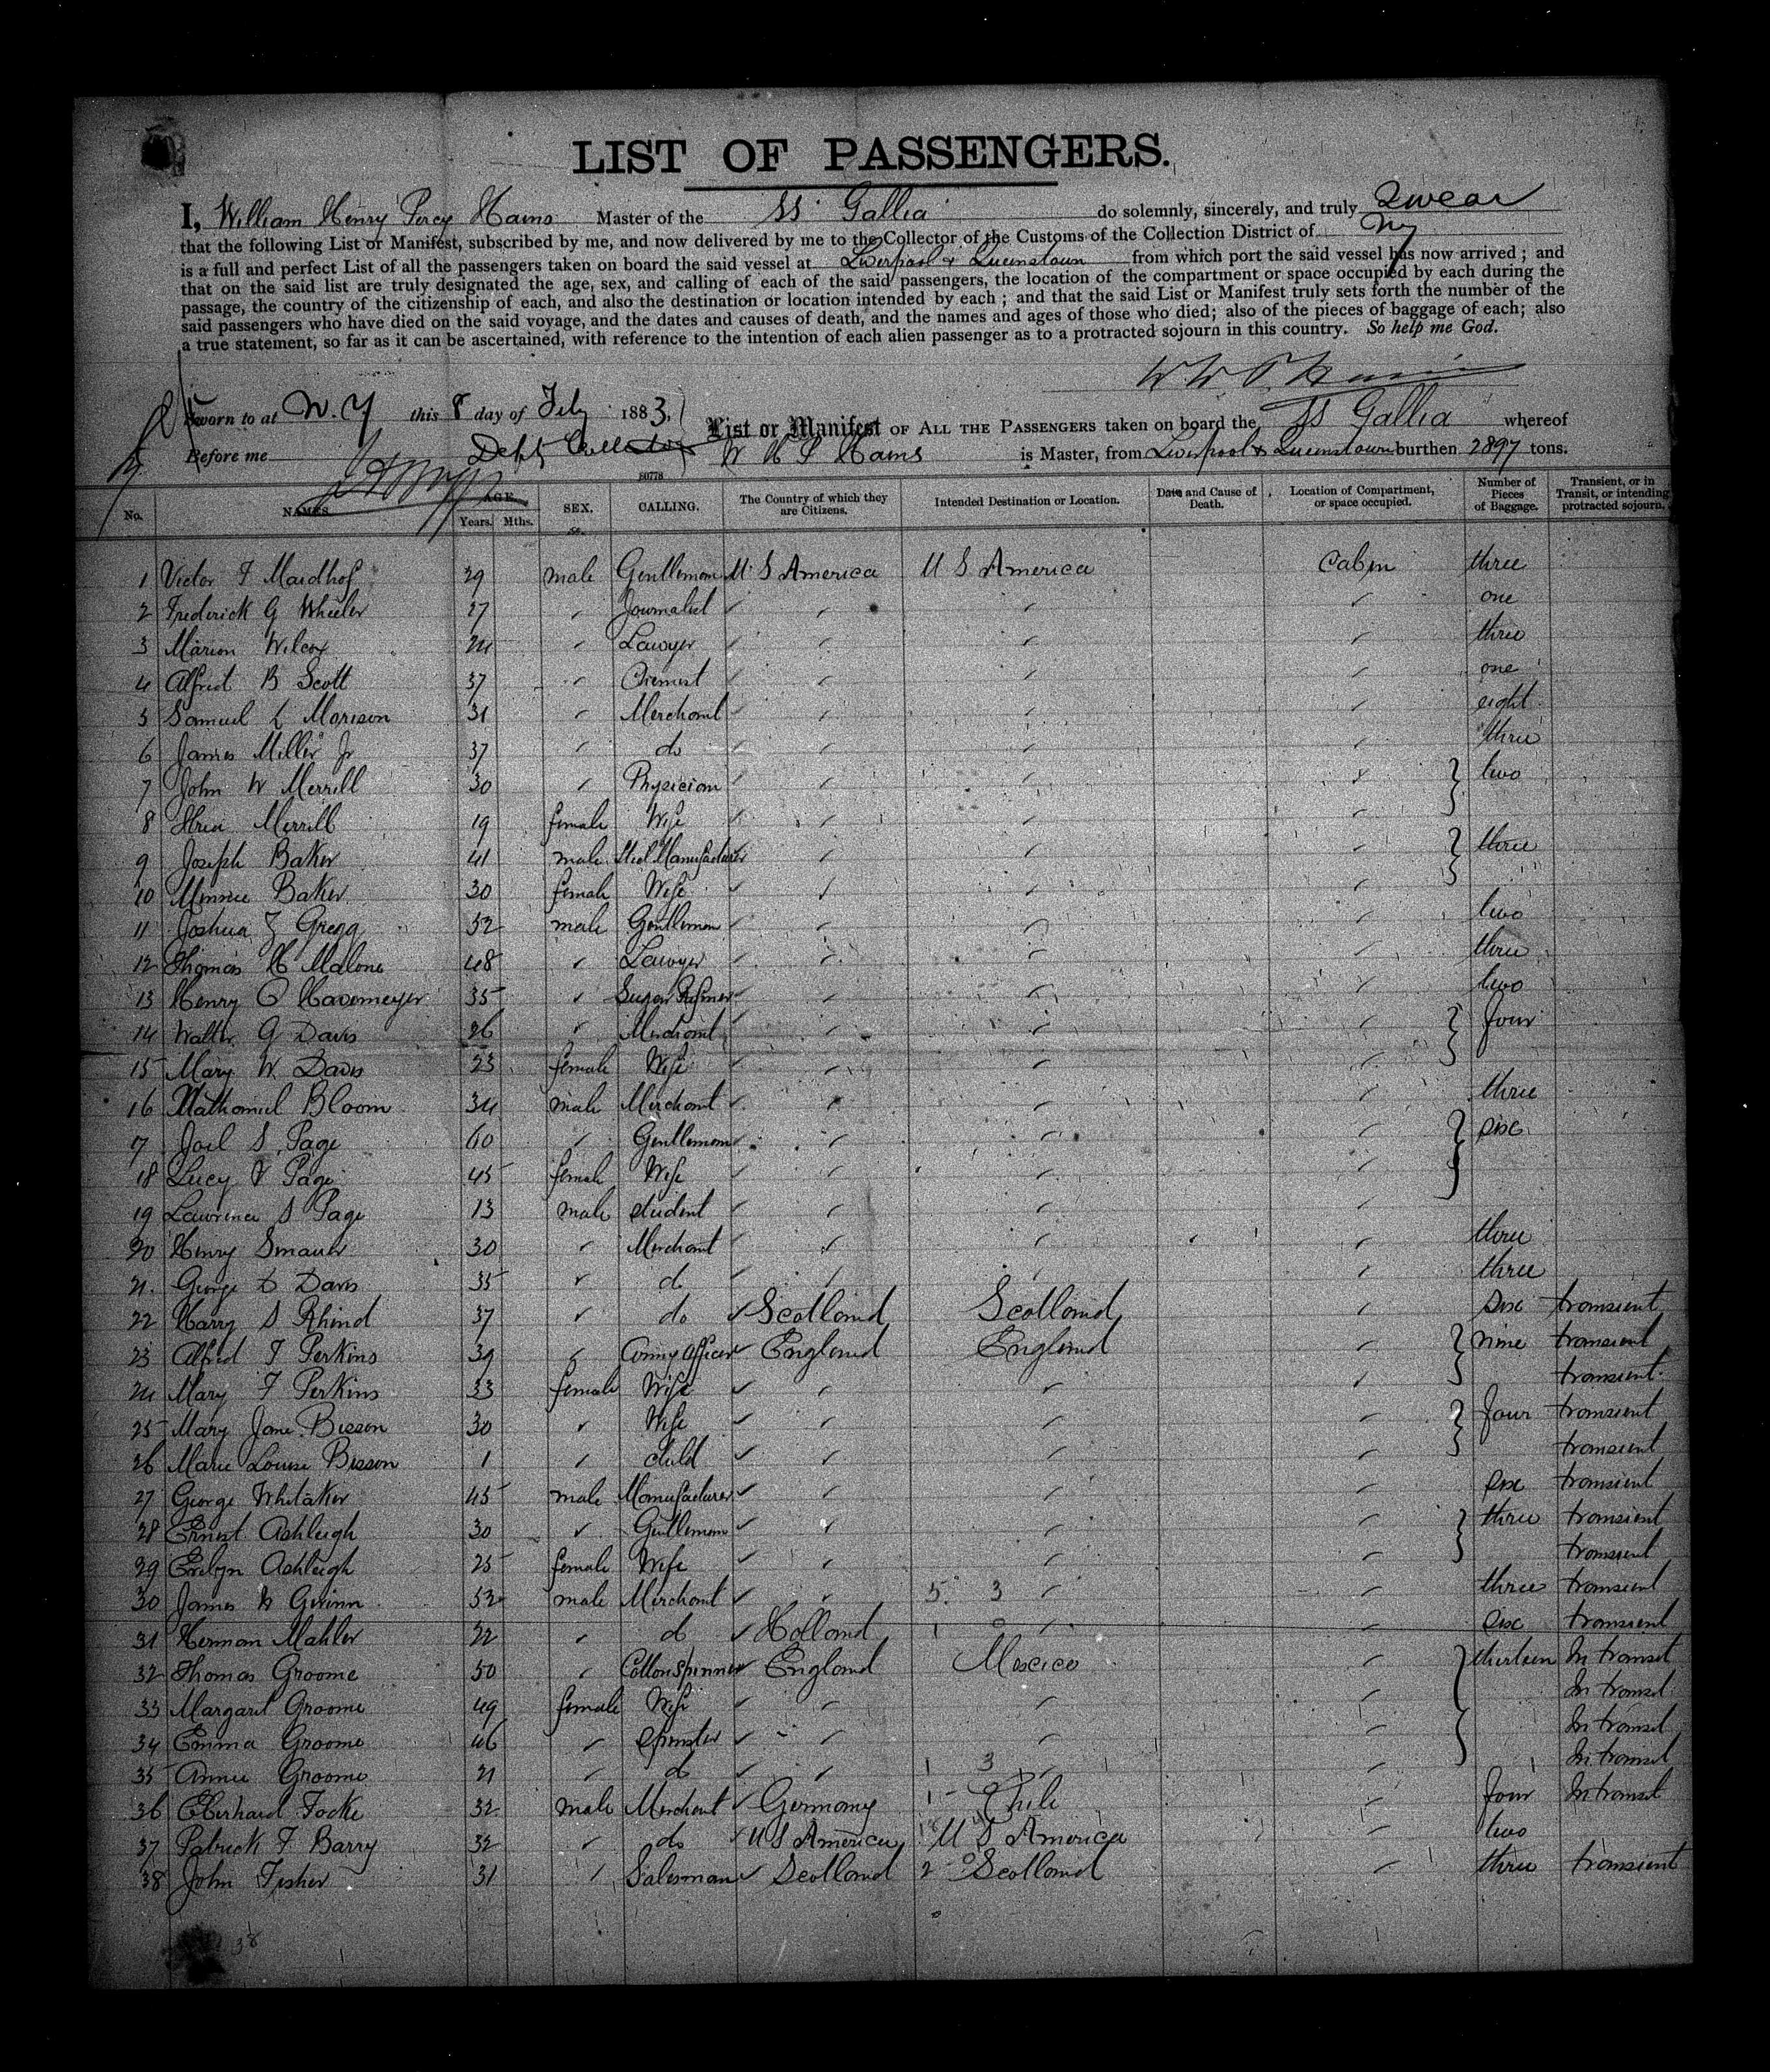 LIST OF PASSENGERS.
I, William Henry Percy Hains Master of the SS Gallia do solemnly, sincerely, and truly Swear
that the following List or Manifest, subscribed by me, and now delivered by me to the Collector of the Customs of the Collection District of NY
is a full and perfect List of all the passengers taken on board the said vessel at Liverpool & Queenstown from which port the said vessel has now arrived ; and
that on the said list are truly designated the age, sex, and calling of each of the said passengers, the location of the compartment or space occupied by each during the
passage, the country of the citizenship of each, and also the destination or location intended by each ; and that the said List or Manifest truly sets forth the number of the
said passengers who have died on the said voyage, and the dates and causes of death, and the names and ages of those who died; also of the pieces of baggage of each; also
a true statement, so far as it can be ascertained, with reference to the intention of each alien passenger as to a protracted sojourn in this country. So help me God.
Sworn to at N.Y this 8 day of Feby 1883,
List or Manifest OF ALL THE PASSENGERS taken on board the SS Gallia whereof
Before me Dept Collector W H P Hains is Master, from Liverpool & Queenstown burthen 2897 tons.
50778
No. NAMES. AGE. Years. Mths. SEX. CALLING. The Country of which they are Citizens. Intended Destination or Location. Date and Cause of Death. Location of Compartment, or space occupied. Number of Pieces of Baggage. Transient, or in Transit, or intending protracted sojourn.
1 Victor F Maidhof 29 male Gentleman U S America U S America Cabin three
2 Frederick G Wheeler 27 Journalist one
3 Marion Wilcox 24 Lawyer three
4 Alfred B Scott 37 Chemist one
5 Samuel L Morison 31 Merchant eight
6 James Miller Jr 37 do three
7 John W Merrill 30 Physician two
8 Merrill 19 female Wife
9 Joseph Baker 41 male Steel Manufacturer three
10 Minnie Baker 30 female Wife
11 Joshua Z Gregg 52 male Gentleman two
12 Thomas H Malone 48 Lawyer three
13 Henry O Havemeyer 35 Sugar Refiner two
14 Walter G Davis 26 Merchant four
15 Mary W. Davis 23 female Wife
16 Nathaniel Bloom 34 male Merchant three
17 Joel S Page 60 Gentleman six
18 Lucy V Page 45 female Wife
19 Lawrence S Page 13 male Student
20 Henry 30 Merchant three
21. George D Davis 35 do three
22 Harry S Rhind 37 do Scotland Scotland six transient
23 Alfred F Perkins 39 Army Officer England England nine transient
24 Mary F Perkins 33 female Wife transient
25 Mary Jane Bisson 30 Wife four transient
26 Marie Louise Bisson 1 child transient
27 George Whitaker 45 male Manufacturer six transient
28 Ernest Ashleigh 30 Gentleman three transient
29 Evelyn Ashleigh 25 female Wife transient
30 James W Gwinn 52 male Merchant 5. 3 three transient
31 Herman Mahler 22 do Holland 1 0 six transient
32 Thomas Groome 50 Cotton Spinner England Mexico thirteen In transit
33 Margaret Groome 49 female Wife In transit
34 Emma Groome 46 Spinster In transit
35 Annie Groome 21 do 1 3 In transit
36 Eberhard Focke 32 male Merchant Germany 1 Chile four In transit
37 Patrick F Barry 32 do U S America U S America two
38 John Fisher 31 Salesman Scotland 2 0 Scotland three transient
38